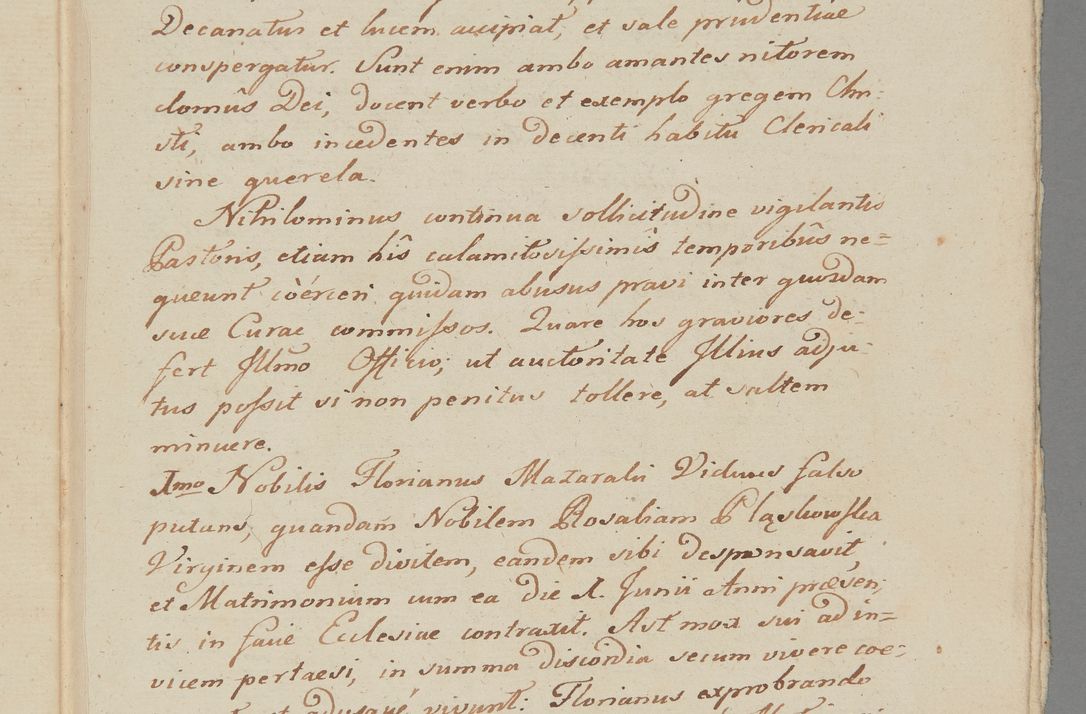 Decanatus et lucem accipiat, et sale prudentiae
conspergatur. Sunt enim ambo amantes nitorem
domûs Dei, docent verbo et exemplo gregem Chri-
sti, ambo incedentes in decenti habitu Clericali
sine querela.
Nihilominus continua sollicitudine vigilantis
Pastoris, etiam hîs calamitosissimîs temporibûs ne=
queunt coërceri quidam abusus pravi inter quosdam
suae Curae commissos. Quare hos graviores de-
fert Illmo Officio, ut auctoritate Illius adju-
tus possit si non penitus tollere, at saltem
minuere.
1mo Nobilis Florianus Mazaraki Viduus falso
putans, quandam Nobilem Rosaliam Pląskowska
Virginem esse divitem, eandem sibi desponsavit,
et Matrimonium cum ea die 1. Junii Anni praesen-
tis in facie Ecclesiae contraxit. Ast mox sui ad in=
vicem pertaesi, in summa discordia secum vivere coe-
et adusque vivunt: Florianus exprobrando